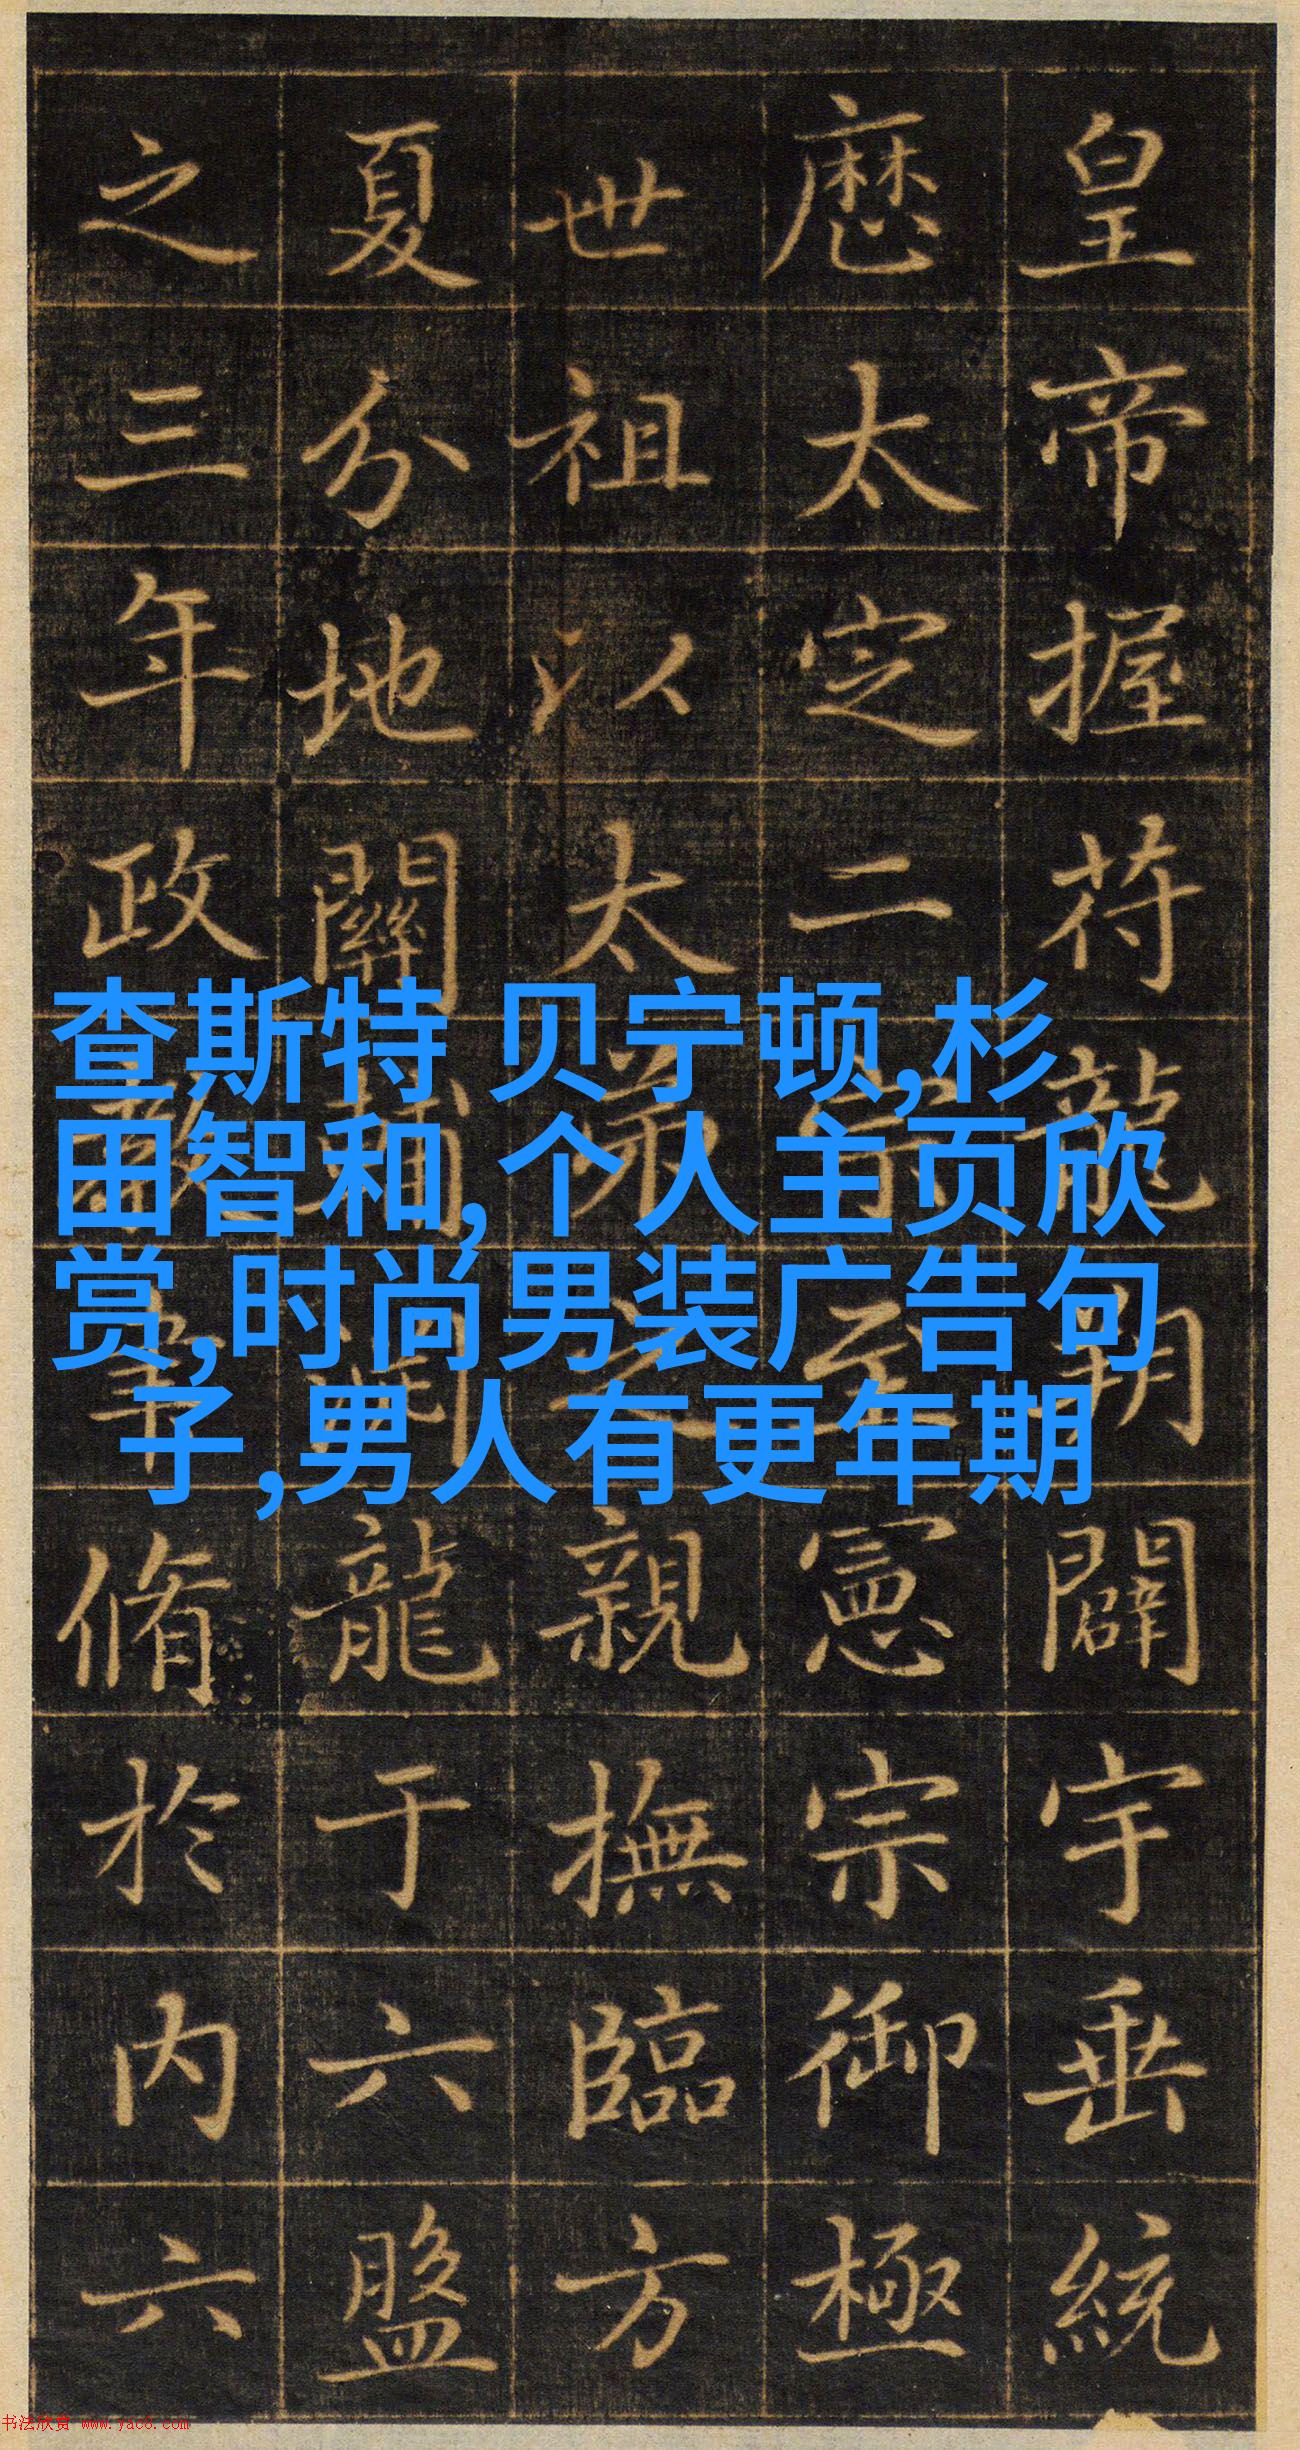 皇帝握符龍朔闢宇垂統
歷太定二宗至憲宗御極
世祖以太弟之親撫臨方
夏分地關輔開龍于六盤
之三年政教聿脩於內六
查斯特 贝宁顿,杉
田智和,个人主页欣
赏,时尚男装广告句
子,男人有更年期
书法欣赏 www.yac8.com